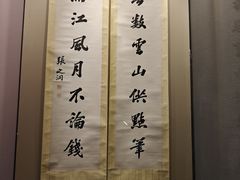 數雪山供點筆
江風月不論錢
張之洞